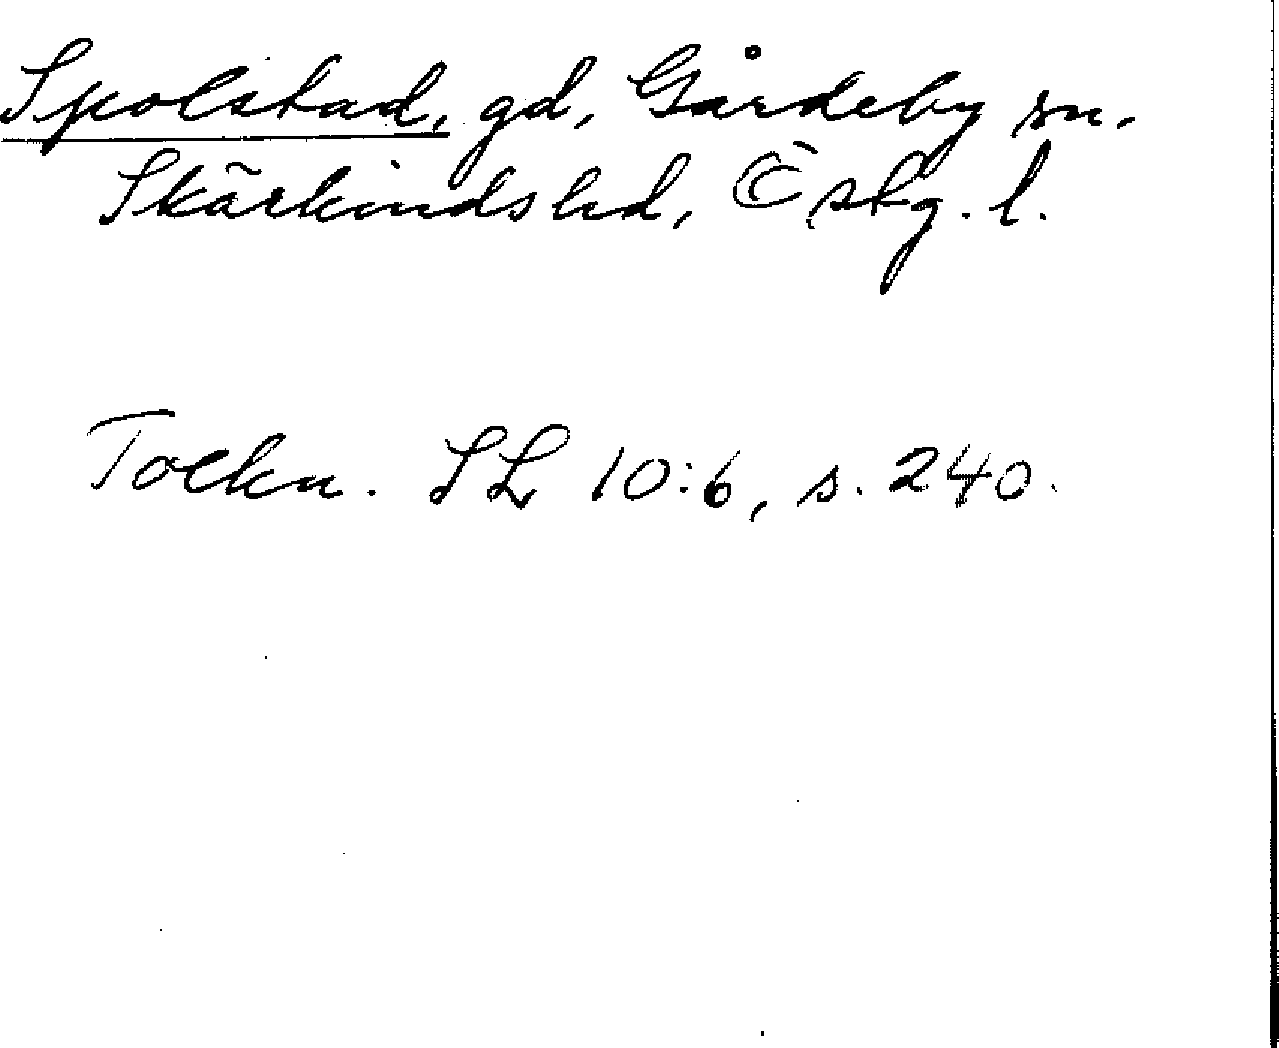 Spolstad, gd, Gårdeby sn.
Skärkinds hd, Östg. l.
Tolkn. SL 10:6, s. 240.